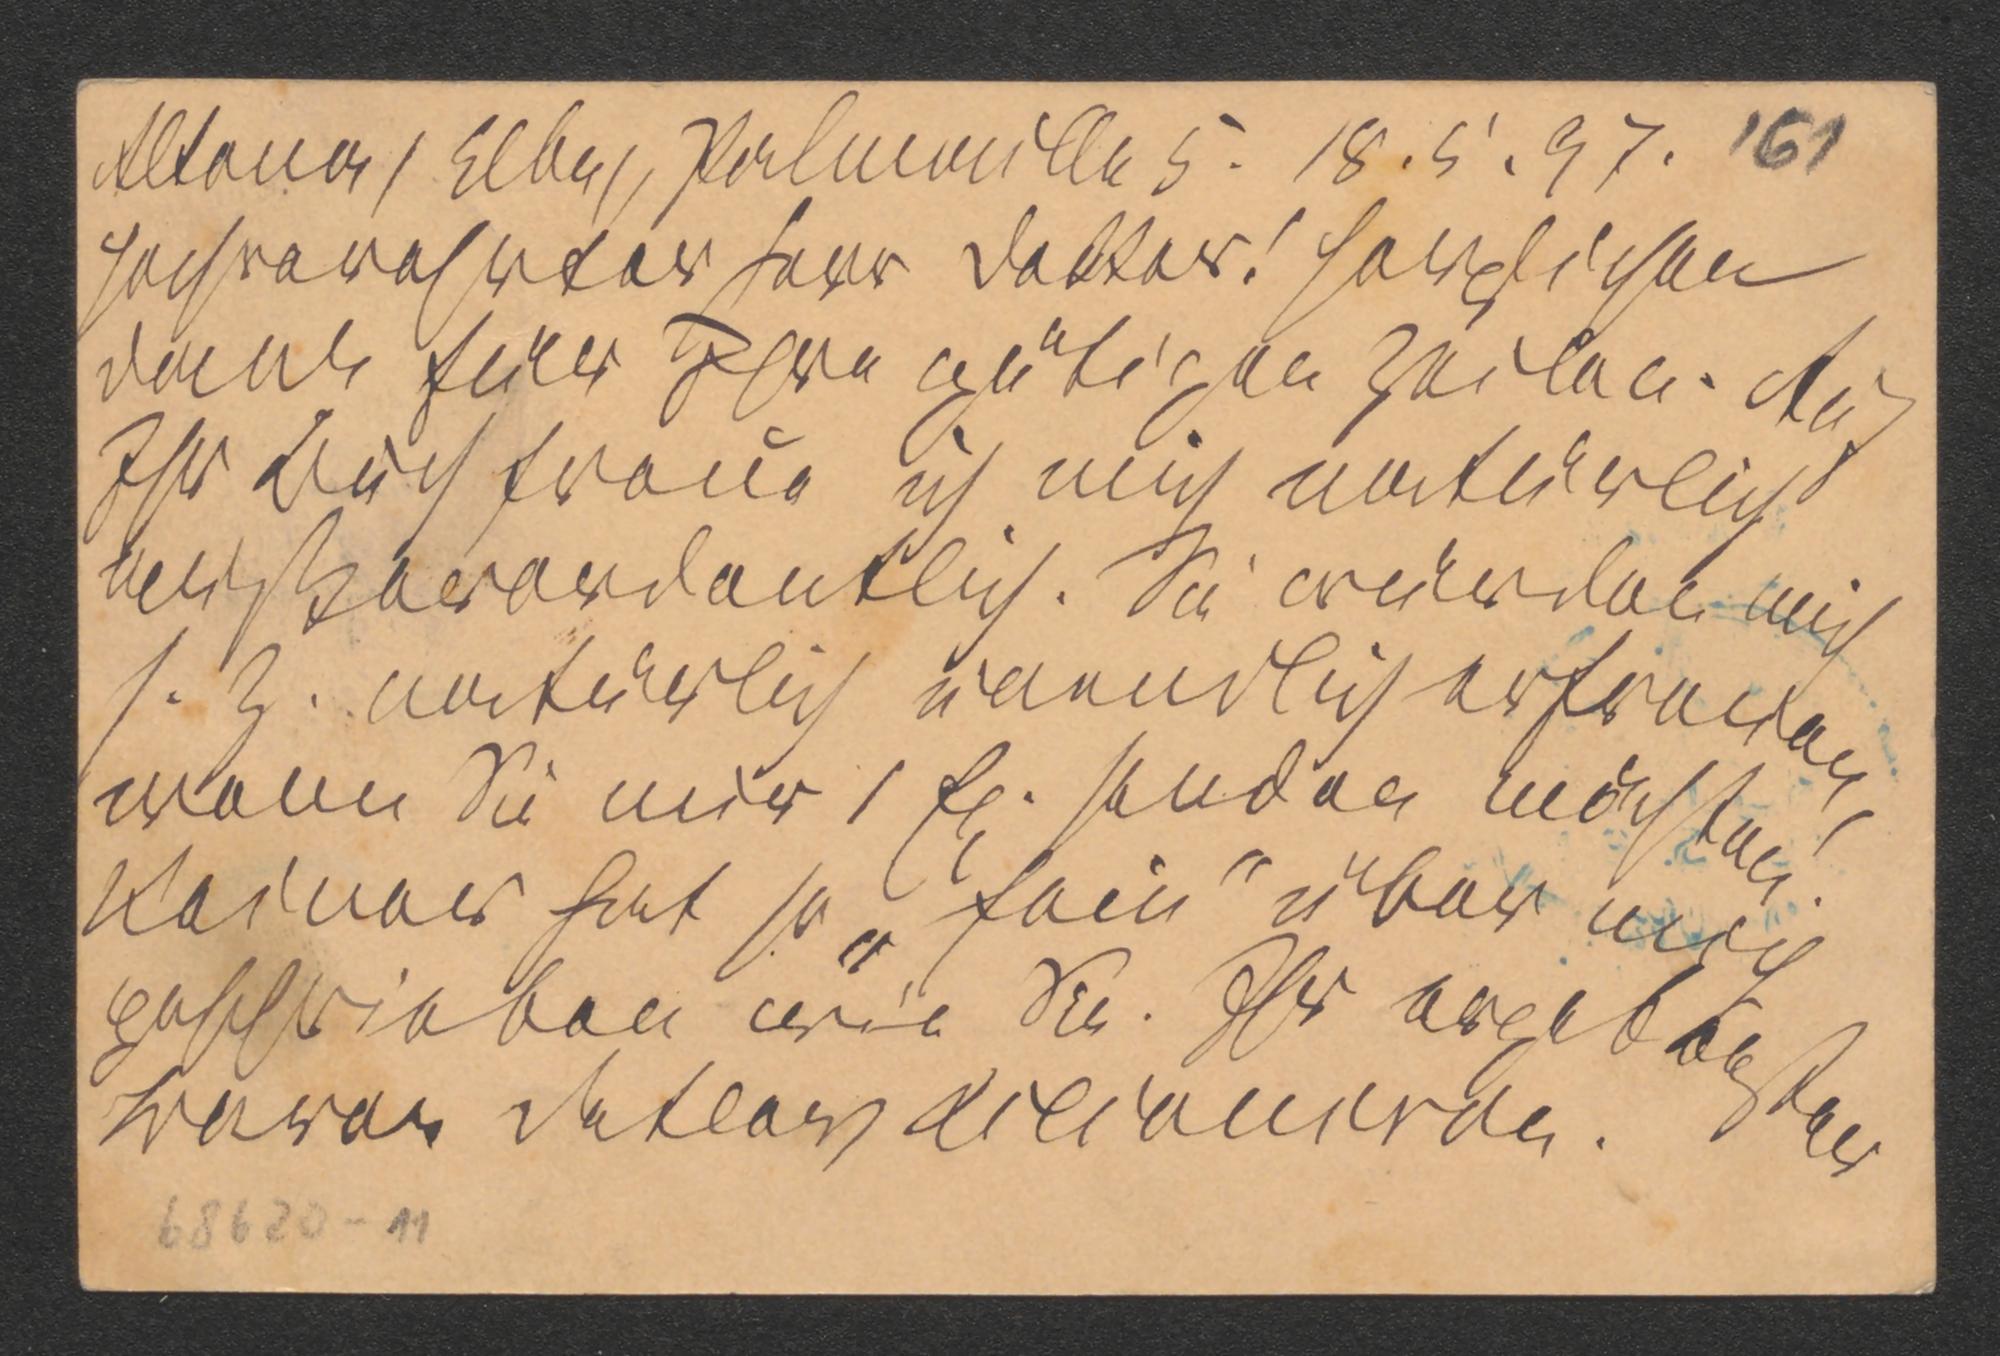 Altona (Elbe), Palmaille 5. 18.5.97. 161
Hochverehrter Herr Doktor! Herzlichen
Dank für Ihre gütigen Zeilen. Auf
Ihr Buch freue ich mich natürlich
außerordentlich. Sie würden mich
s. Z. natürlich unendlich erfreuen,
wenn Sie mir 1 Ex. senden möchten!
Keiner hat so „fein“ über mich
geschrieben wie Sie. Ihr ergebenster
treuer Detlev Liliencron.
68620-11